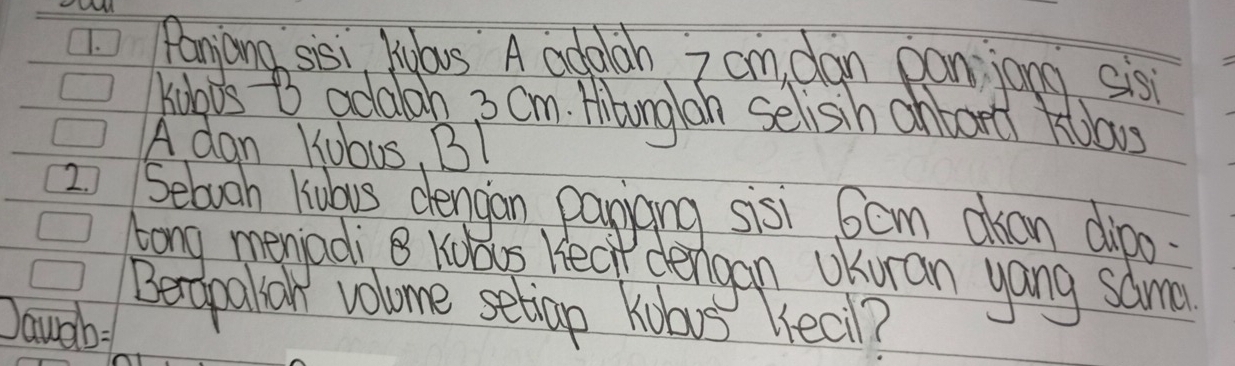 1. Panjang sisi kubus A adalah 7 cm, dan panjang sisi
kubus B adalah 3 cm. Hitunglah selisih antara kubus
A dan kubus B!
2. Sebuah kubus dengan panjang sisi 6cm akan dipo-
tong menjadi 8 kubus kecil dengan ukuran yang sama.
Berapakah volume setiap kubus kecil?
Jawab=